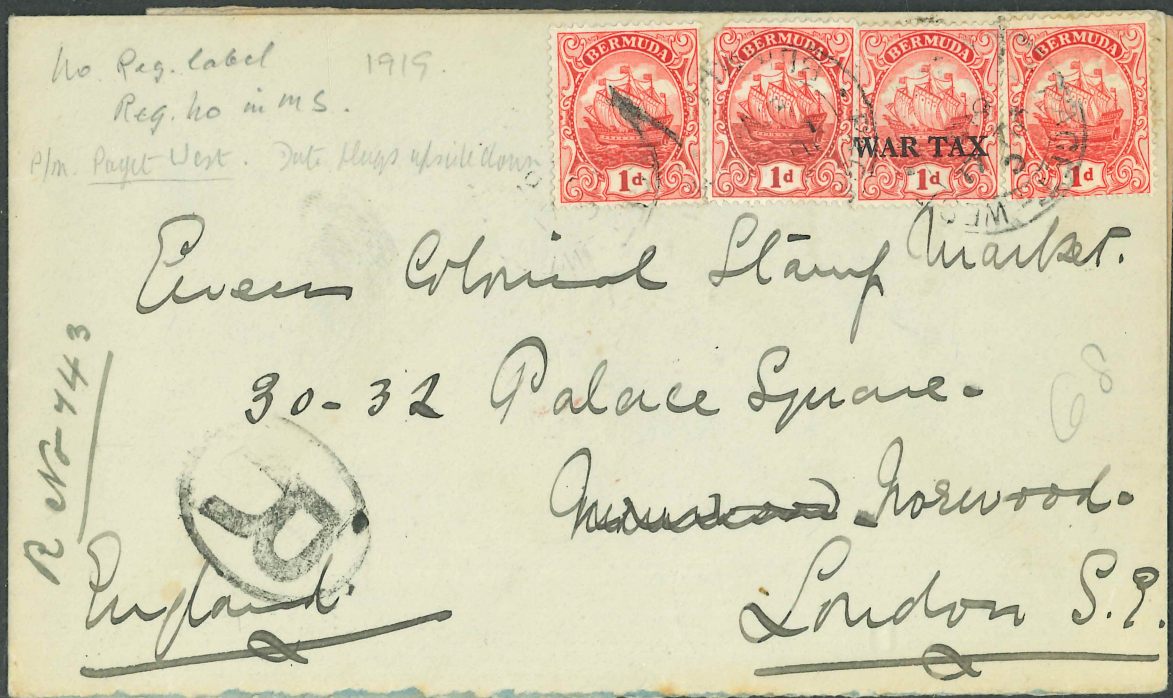 No Reg. label 1919.
Reg. No in MS.
P/m. Paget West. Date plugs upside down
BERMUDA
1d
BERMUDA
1d
BERMUDA
WAR TAX
1d
BERMUDA
1d
Ewen Colonial Stamp Market.
30-32 Palace Square.
Norwood.
London S.E.
England.
R No 743
R
68